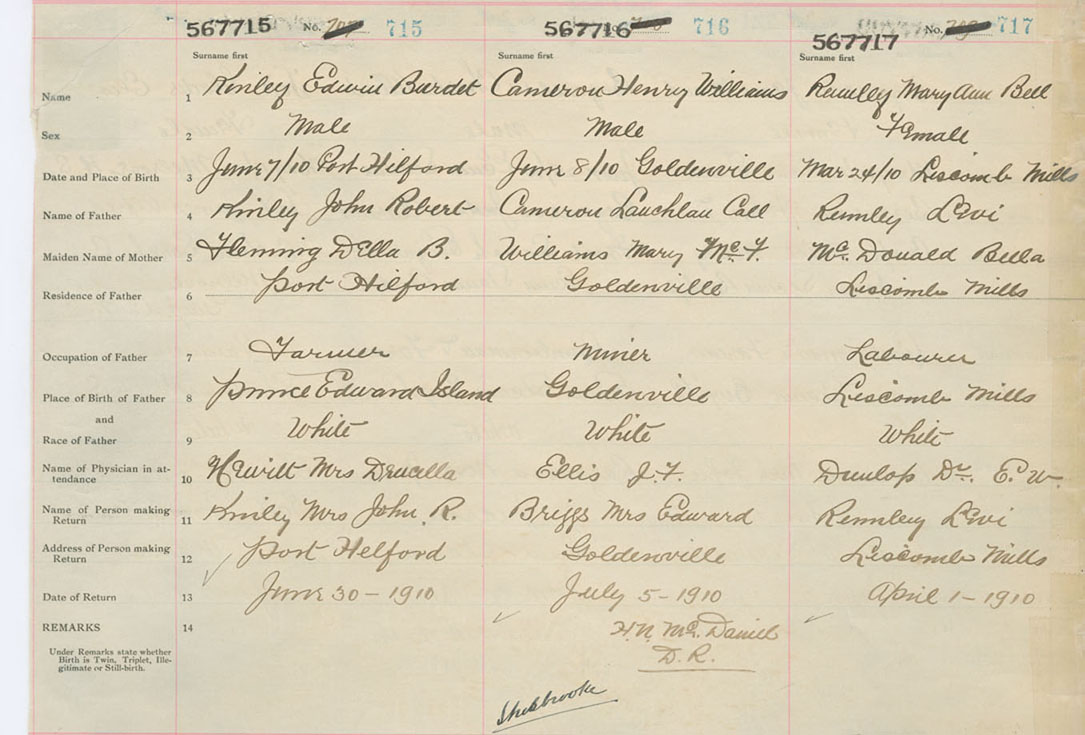 567715 No. 715 567716 716 567717 No. 717
Surname first Surname first Surname first
Name 1 Kinley Edwin Burdet Cameron Henry Williams Rumley Mary Ann Bell
Sex 2 Male Male Female
Date and Place of Birth 3 June 7/10 Port Hilford June 8/10 Goldenville Mar 24/10 Liscomb Mills
Name of Father 4 Kinley John Robert Cameron Lauchlan Call Rumley Levi
Maiden Name of Mother 5 Fleming Della B. Williams Mary McF. McDonald Bella
Residence of Father 6 Port Hilford Goldenville Liscomb Mills
Occupation of Father 7 Farmer Miner Labourer
Place of Birth of Father 8 Prince Edward Island Goldenville Liscomb Mills
and
Race of Father 9 White White White
Name of Physician in at-
tendance 10 Hewitt Mrs Drucilla Ellis J.F. Dunlop Dr. E. W.
Name of Person making
Return 11 Kinley Mrs John R. Briggs Mrs Edward Rumley Levi
Address of Person making
Return 12 Port Helford Goldenville Liscomb Mills
Date of Return 13 June 30 - 1910 July 5 - 1910 April 1 - 1910
REMARKS 14 H.N. McDaniel
D.R.
Under Remarks state whether
Birth is Twin, Triplet, Ille-
gitimate or Still-birth.
Sherbrooke